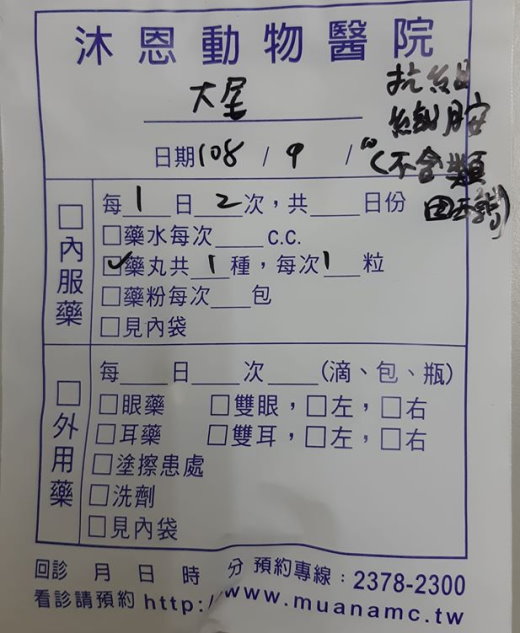 沐恩動物醫院
大尾
抗組
織胺
日期108 / 9 / 10
(不含類
固醇)
□內服藥
每 1 日 2 次，共___日份
□藥水每次___c.c.
✓藥丸共 1 種，每次 1 粒
□藥粉每次___包
□見內袋
□外用藥
每___日___次___(滴、包、瓶)
□眼藥 □雙眼，□左，□右
□耳藥 □雙耳，□左，□右
□塗擦患處
□洗劑
□見內袋
回診 月 日 時 分 預約專線：2378-2300
看診請預約 http://www.muanamc.tw